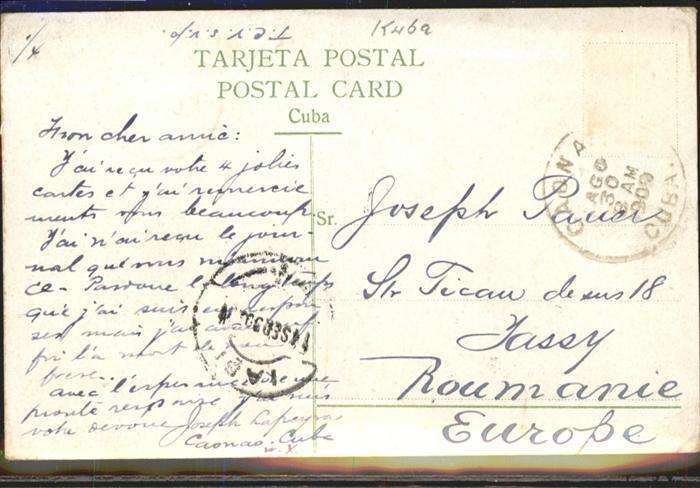 Kuba
TARJETA POSTAL
POSTAL CARD
Cuba
Mon cher amie:
J'ai reçu votre 4 jolies
cartes et j'ai remercie
ments vous beaucoup
J'ai n'ai reçu le jour-
nal que vous
ce. Pardone le long temps
que j'ai suis en
ses mais j'ai
fri la mort de
frere.
avec l'esperance
pronte response
votre devoué Joseph Lapeyra
Caonao. Cuba
Sr. Joseph Pauer
Str Ticau de sus 18
Jassy
Roumanie
Europe
CAONAO
AGO
30
8 AM
909
CUBA.
14 SEP 909